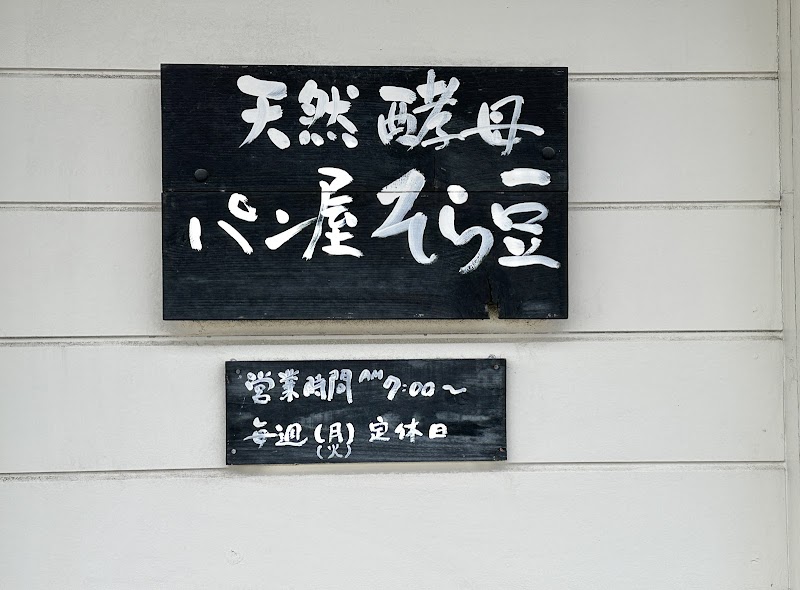 天然酵母
パン屋そら豆
営業時間 AM 7:00～
毎週(月)定休日
(火)